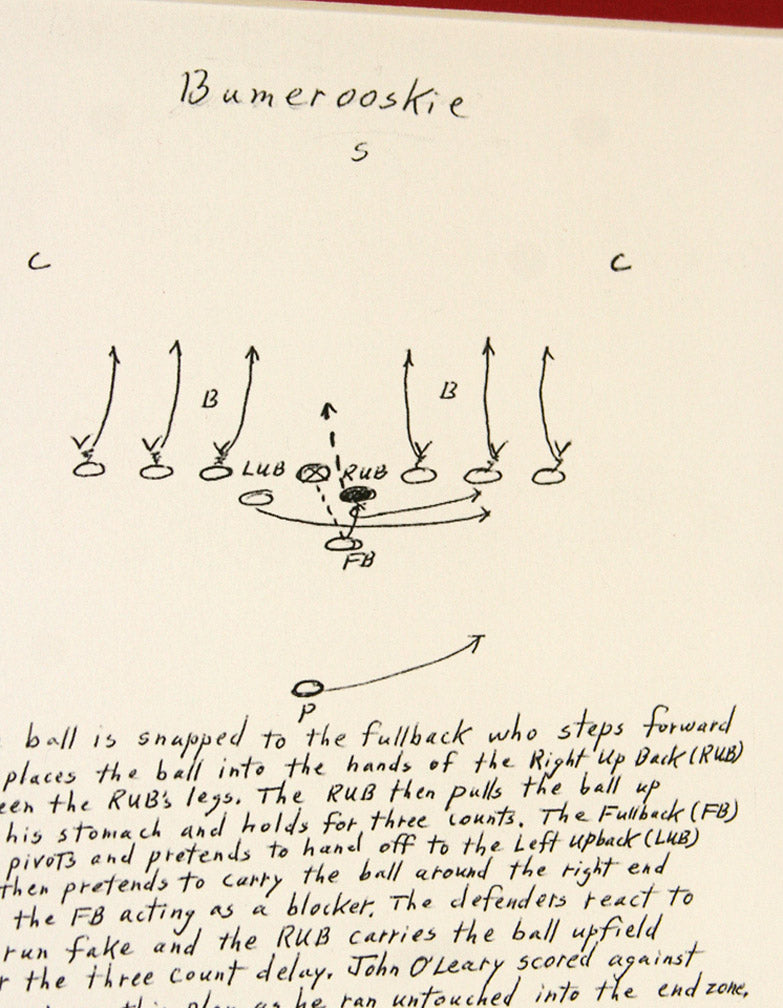 Bumerooskie
S
C C
B B
V V V V V V
LUB RUB
FB
P
ball is snapped to the fullback who steps forward
places the ball into the hands of the Right Up Back (RUB)
een the RUB's legs. The RUB then pulls the ball up
his stomach and holds for three counts. The Fullback (FB)
pivots and pretends to hand off to the Left Upback (LUB)
then pretends to carry the ball around the right end
the FB acting as a blocker. The defenders react to
run fake and the RUB carries the ball upfield
r the three count delay. John O'Leary scored against
this play as he ran untouched into the end zone.